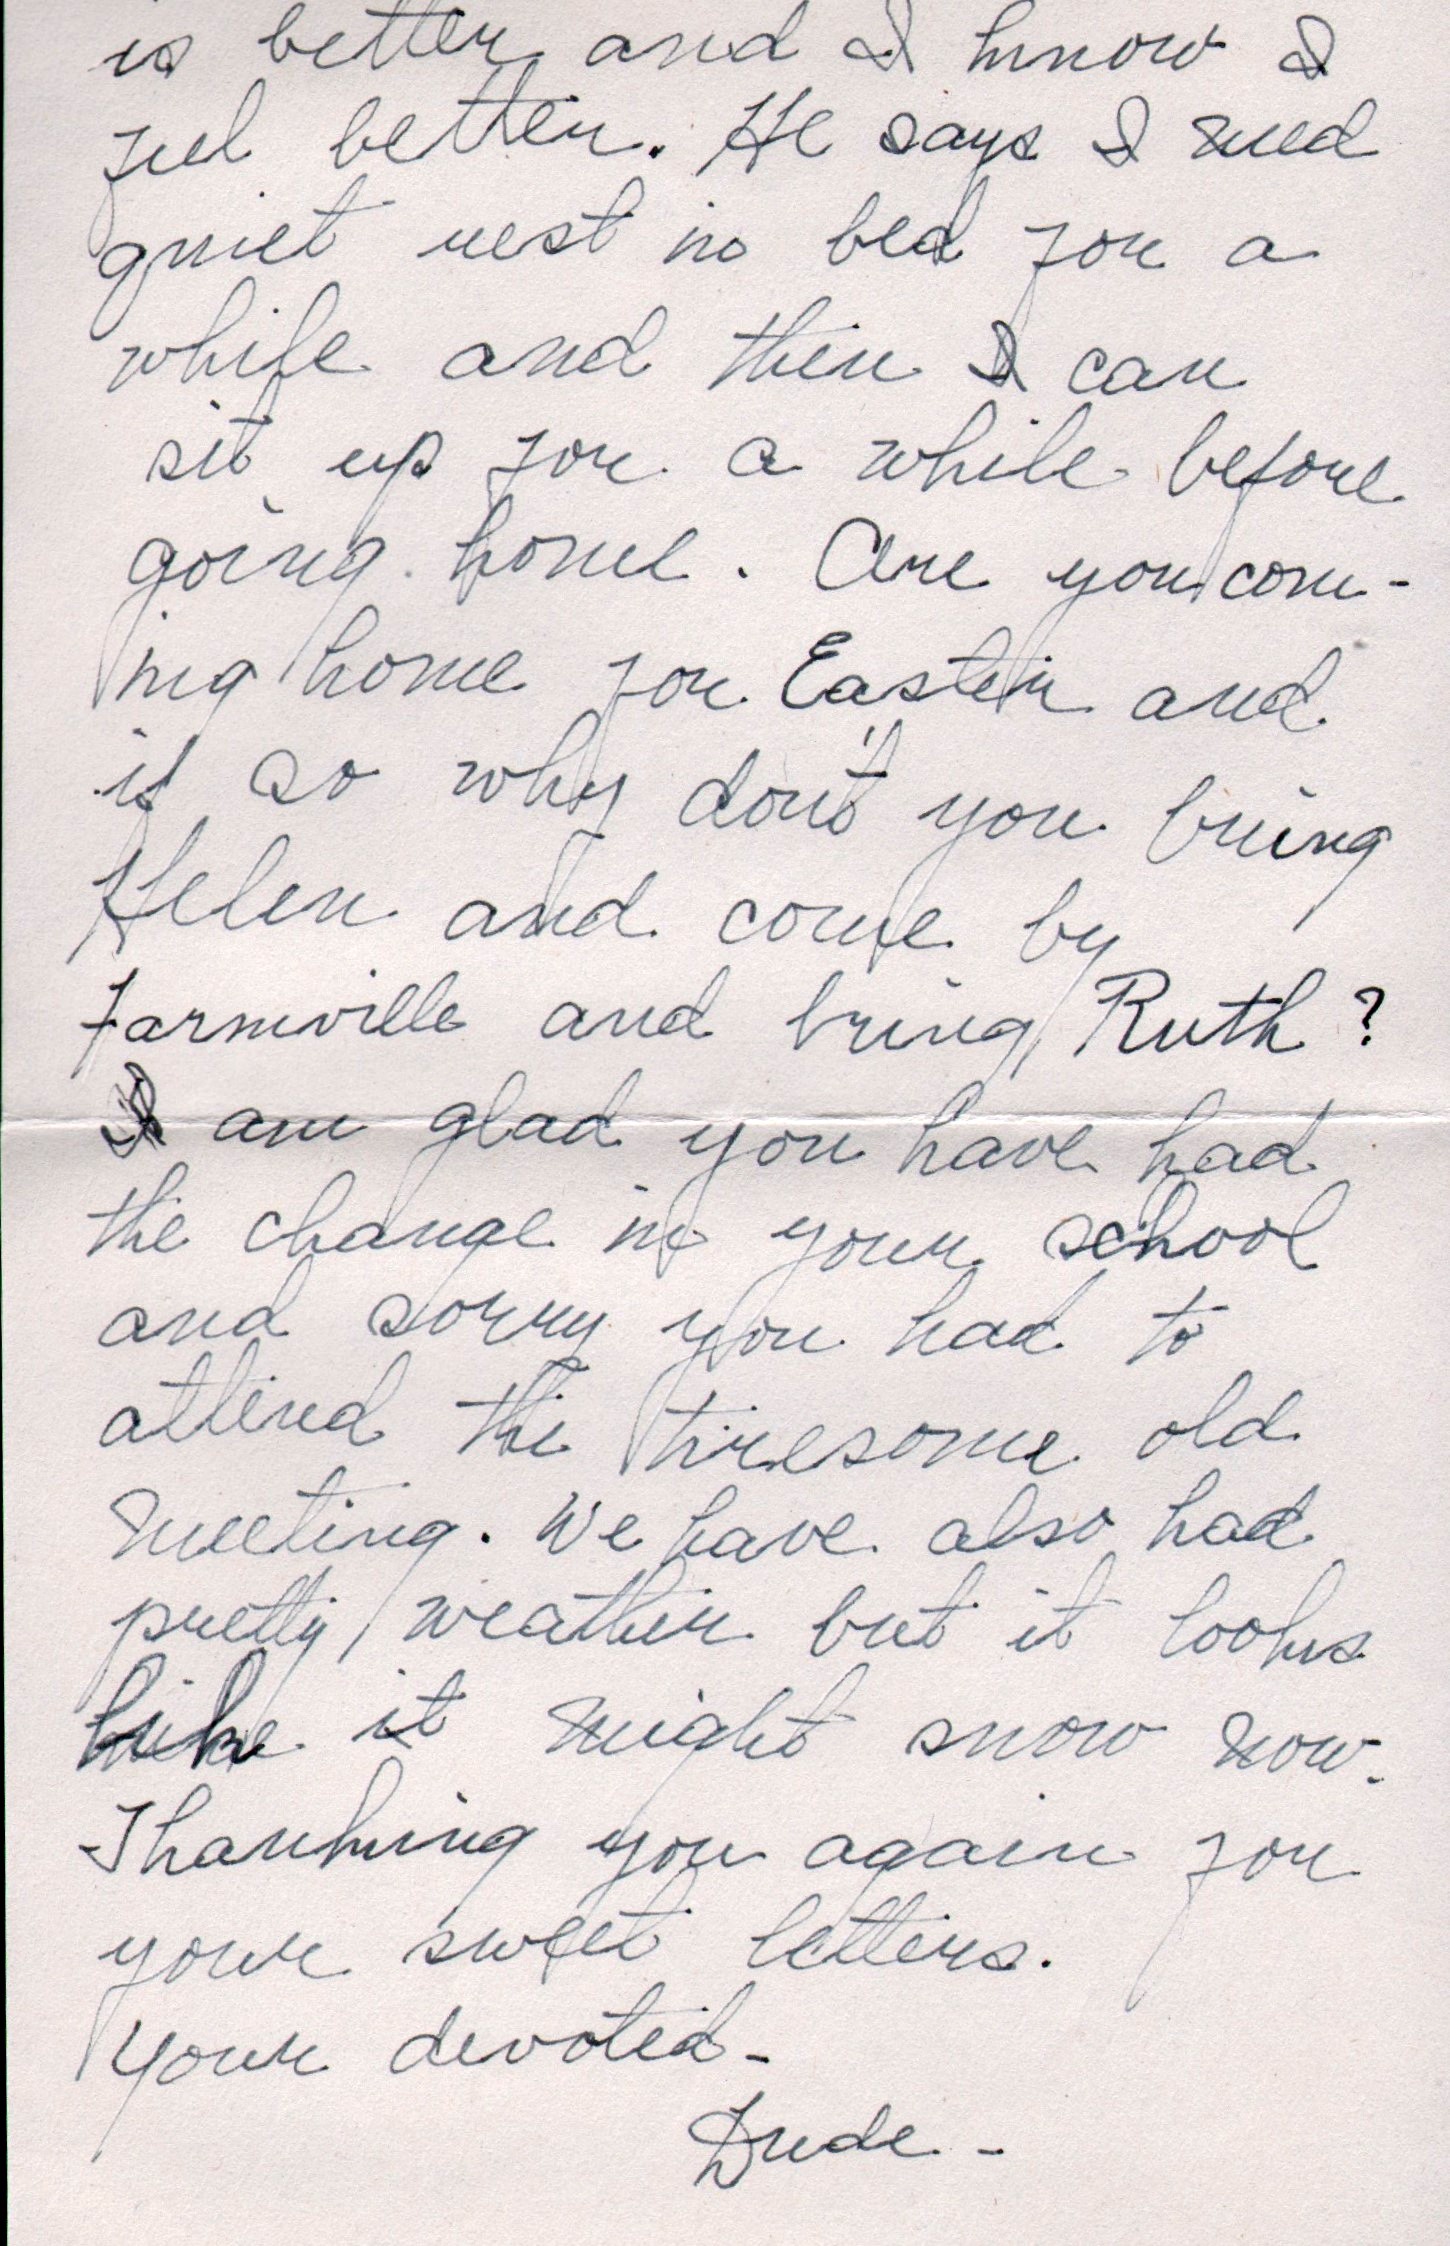 is better and I know I
feel better. He says I need
quiet rest in bed for a
while and then I can
sit up for a while before
going home. Are you com-
ing home for Easter and
if so why don't you bring
Helen and come by
Farmville and bring Ruth?
I am glad you have had
the change in your school
and sorry you had to
attend the tiresome old
meeting. We have also had
pretty weather but it looks
like it might snow now.
Thanking you again for
your sweet letters.
Your devoted-
Dude-